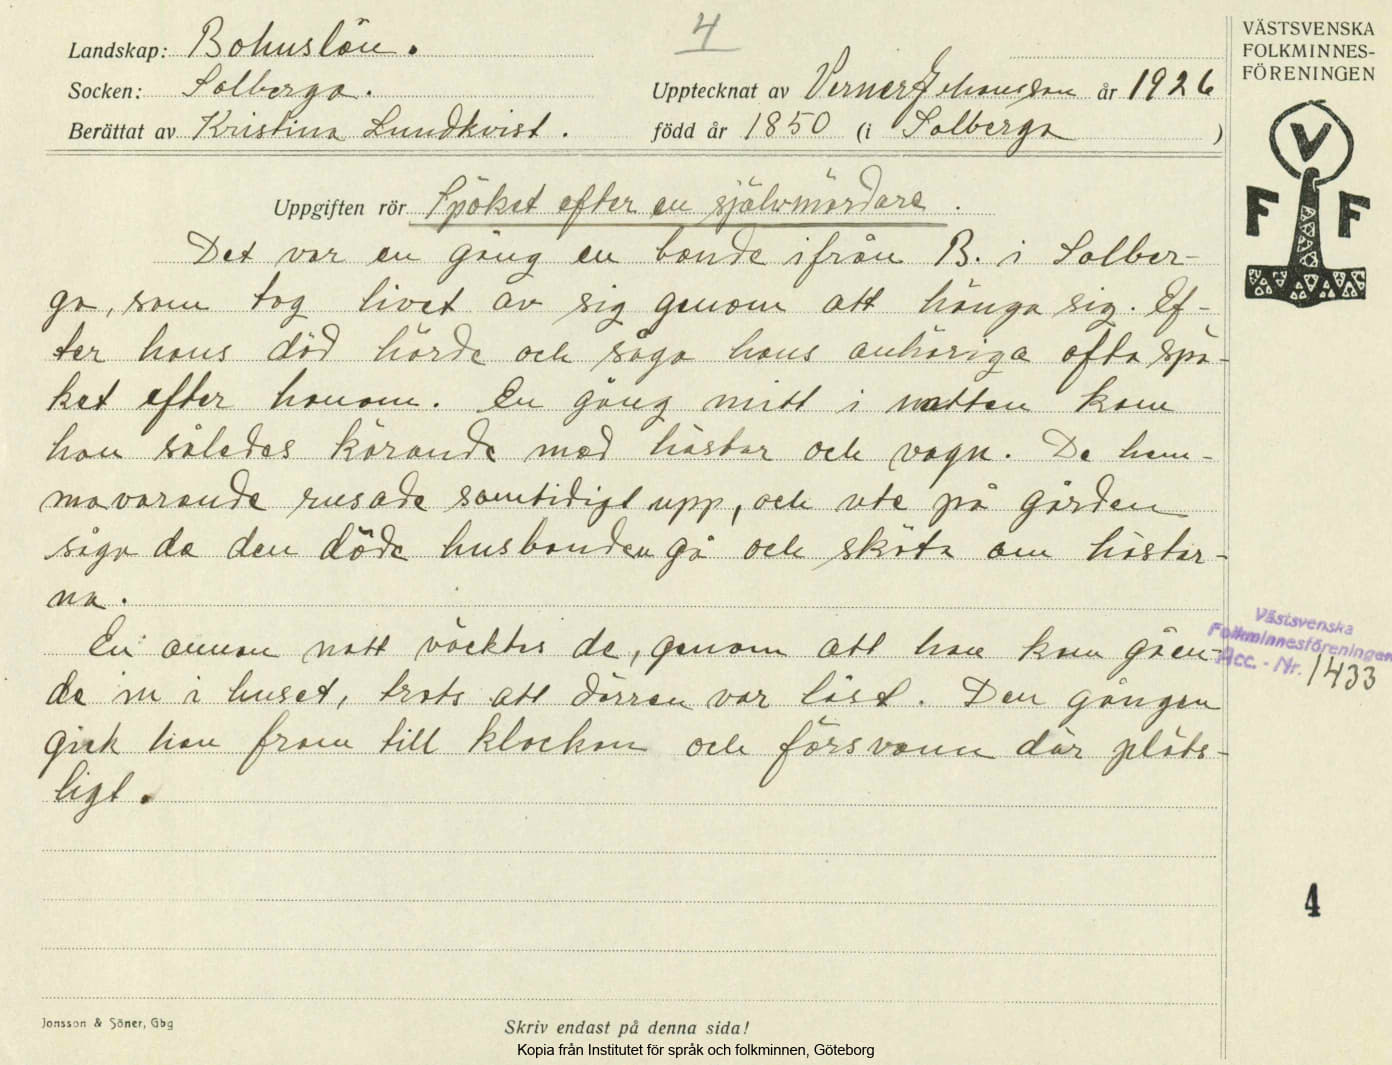 4
Landskap: Bohuslän.
Socken: Solberga.
Upptecknat av Verner Johansson år 1926
Berättat av Kristina Lundkvist.
född år 1850 (i Solberga )
Uppgiften rör Spöket efter en självmördare.
Det var en gång en bonde ifrån B. i Solber-
ga, som tog livet av sig genom att hänga sig. Ef-
ter hans död hörde och sågo hans anhöriga ofta spö-
ket efter honom. En gång mitt i natten kom
han således körande med hästar och vagn. De hem-
mavarande rusade samtidigt upp, och ute på gården
sågo de den döde husbonden gå och sköta om hästar-
na.
En annan natt väcktes de, genom att han kom gåen-
de in i huset, trots att dörren var låst. Den gången
gick han fram till klockan och försvann där plöts-
ligt.
Jonsson & Söner, Gbg
Skriv endast på denna sida!
Kopia från Institutet för språk och folkminnen, Göteborg
VÄSTSVENSKA
FOLKMINNES-
FÖRENINGEN
V
F F
Västsvenska
Folkminnesföreningen
Acc. - Nr. 1433
4